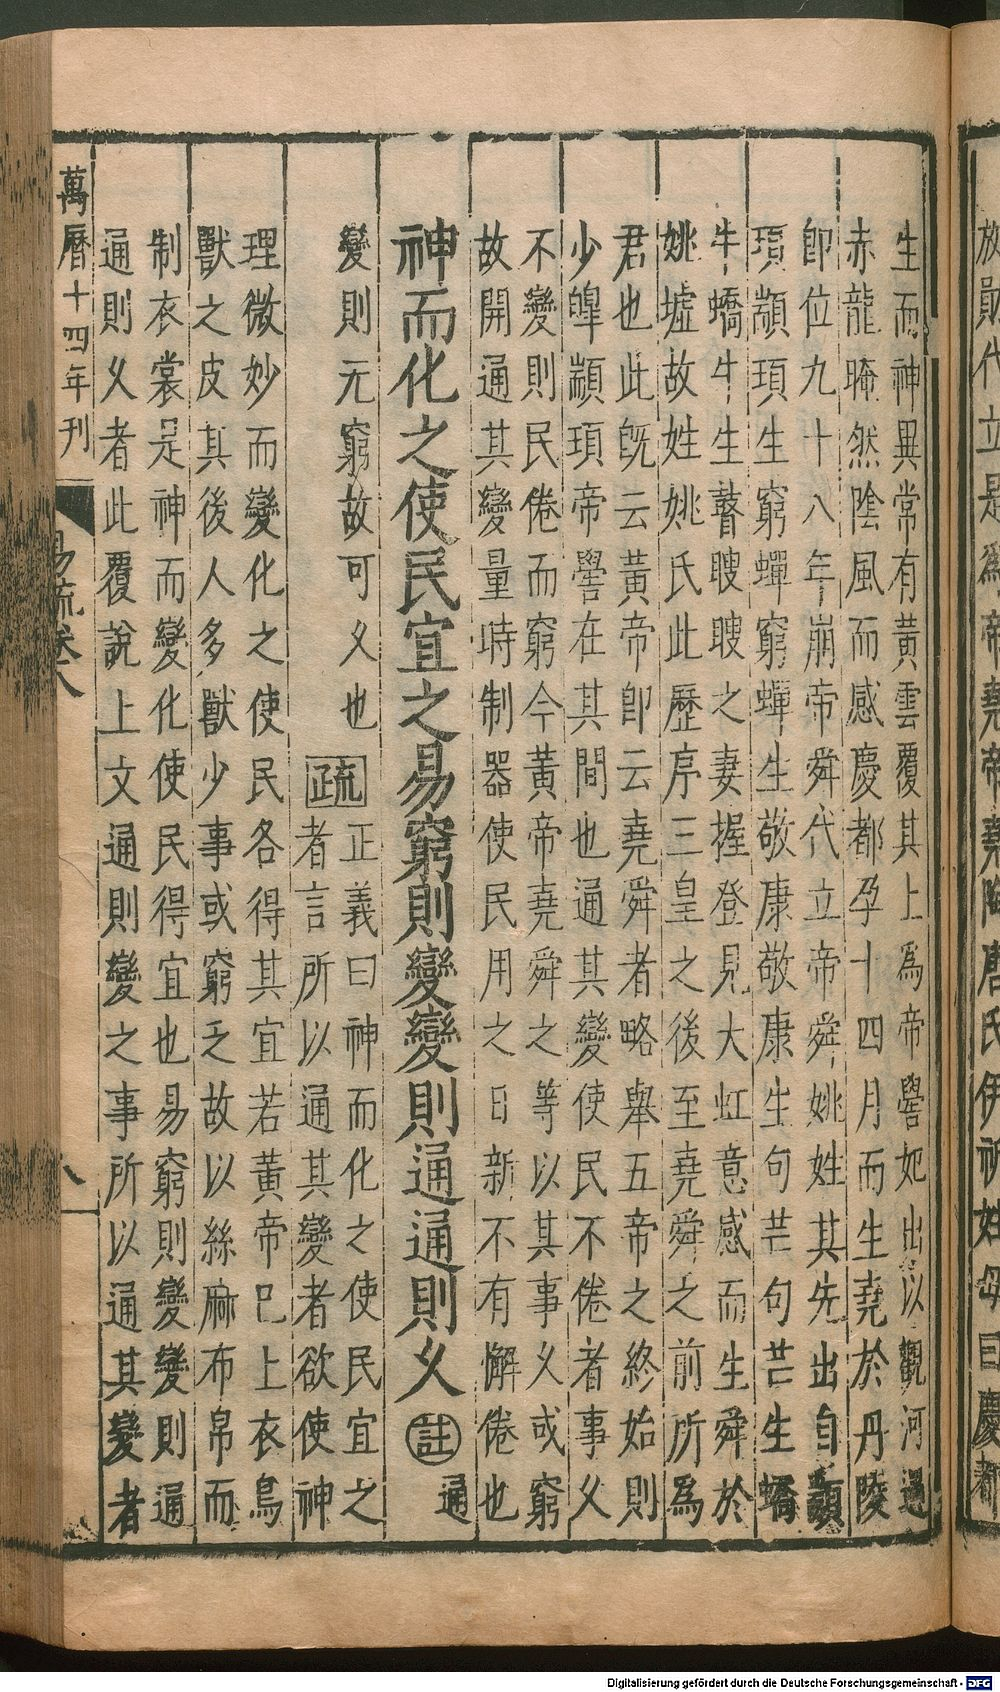 生而神異常有黃雲覆其上爲帝嚳妃出以觀河遇
赤龍晻然陰風而感慶都孕十四月而生堯於丹陵
卽位九十八年崩帝舜代立帝舜姚姓其先出自顓
頊顓頊生窮蟬窮蟬生敬康敬康生句芒句芒生蟜
牛蟜牛生瞽瞍瞍之妻握登見大虹意感而生舜於
姚墟故姓姚氏此歷序三皇之後至堯舜之前所爲
君也此旣云黃帝卽云堯舜者略舉五帝之終始則
少皥顓頊帝嚳在其間也通其變使民不倦者事久
不變則民倦而窮今黃帝堯舜之等以其事久或窮
故開通其變量時制器使民用之日新不有懈倦也
神而化之使民宜之易窮則變變則通通則久註通
變則无窮故可久也疏正義曰神而化之使民宜之
者言所以通其變者欲使神
理微妙而變化之使民各得其宜若黃帝已上衣鳥
獸之皮其後人多獸少事或窮乏故以絲麻布帛而
制衣裳是神而變化使民得宜也易窮則變變則通
通則久者此覆說上文通則變之事所以通其變者
萬曆十四年刊
易疏卷八
八
放勛代立是爲帝堯帝堯陶唐氏伊祁姓母曰慶都
Digitalisierung gefördert durch die Deutsche Forschungsgemeinschaft - DFG